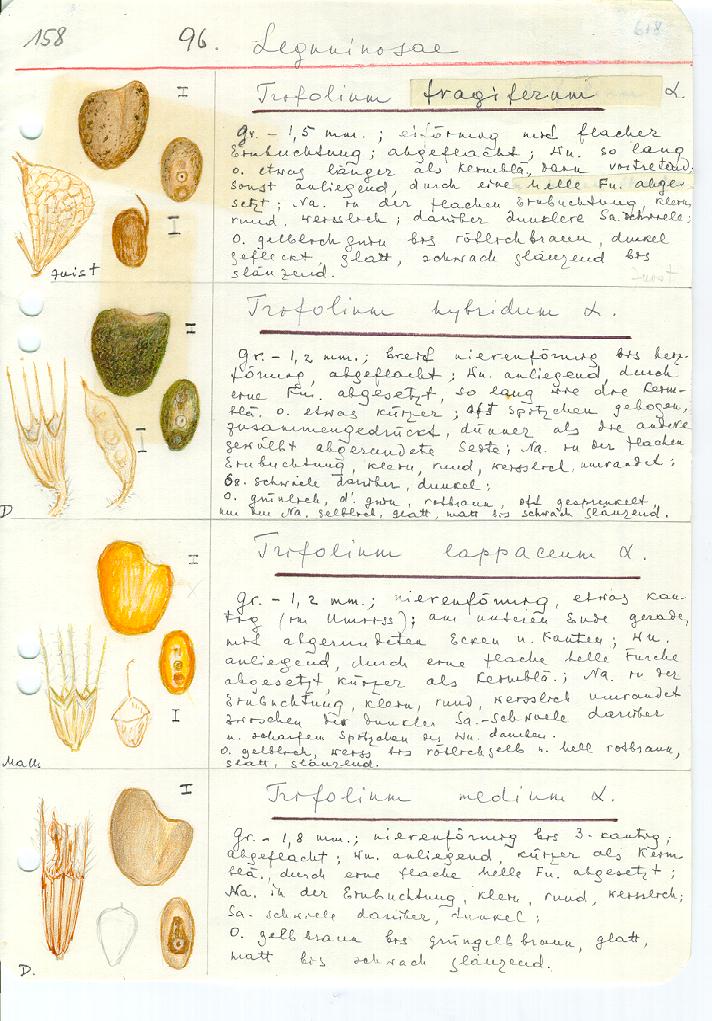 158
96. Leguminosae
618
Trifolium fragiferum L.
Gr. - 1,5 mm.; eiförmig mit flacher
Einbuchtung; abgeflacht; Wu. so lang
o. etwas länger als Keimblä., dann vortretend
sonst anliegend, durch eine helle Fu. abge-
setzt; Na. in der flachen Einbuchtung, klein,
rund, weisslich; darüber dunklere Sa. schwiele;
O. gelblich grün bis rötlichbraun, dunkel
gefleckt, glatt, schwach glänzend bis
glänzend.
II
I
Trifolium hybridum L.
Gr. - 1,2 mm.; breit nierenförmig bis herz-
förmig, abgeflacht; Wu. anliegend durch
eine Fu. abgesetzt, so lang wie die Keim-
blä. o. etwas kürzer; oft Spitzchen gebogen,
zusammengedrückt, dünner als die andere
gewölbt abgerundete Seite; Na. in der flachen
Einbuchtung, klein, rund, weisslich, umrandet;
Sa. schwiele darüber, dunkel;
O. grünlich, d'grün, rotbraun, oft gesprenkelt
um die Na. gelblich, glatt, matt bis schwach glänzend.
II
I
D
Trifolium lappaceum L.
Gr. - 1,2 mm.; nierenförmig, etwas kan-
tig (im Umriss); am unteren Ende gerade,
mit abgerundeten Ecken u. Kanten; Wu.
anliegend, durch eine flache helle Furche
abgesetzt, kürzer als Keimblä.; Na. in der
Einbuchtung, klein, rund, weisslich umrandet
zwischen der dunklen Sa.-Schwiele darüber
u. scharfem Spitzchen der Wu. daneben.
O. gelblich, weiss bis rötlichgelb u. hell rotbraun,
glatt, glänzend.
II
I
Trifolium medium L.
Gr. - 1,8 mm.; nierenförmig bis 3-kantig;
abgeflacht; Wu. anliegend, kürzer als Keim-
blä., durch eine flache helle Fu. abgesetzt;
Na. in der Einbuchtung, klein, rund, weisslich;
Sa. schwiele darüber, dunkel;
O. gelbbraun bis grüngelbbraun, glatt,
matt bis schwach glänzend.
I
D.